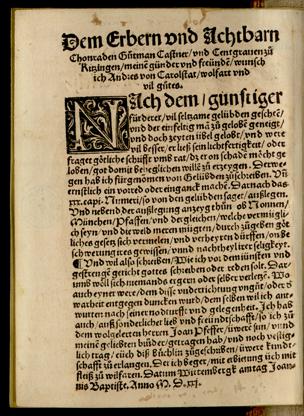 Dem Erbern vnd Achtbarn
Chonraden Gůtman Castner/ vnd Centgrauen zů
Kitzingen/ meinē günder vnd freündē/ wunsch
ich Andres von Carolstat/ wolfart vnd
vil gůtes.
NAch dem/ günstiger
fürderer/ vil seltzame gelübden geschē/
vnd der einfeltig mā zů gelobē geneigt/
vnd doch zeyten übel gelobt/ vnd were
vil besser/ er ließ sein leichfertigkeit/ oder
fraget götliche schrifft vmb rat/ dz er on schadē möcht ge
loben/ got domit beheglichen willē zů ertzeygen. Derwe-
gen hab ich fürgenōmen von Gelübden zůschreiben. Vñ
ernstlich ein vorred oder eingank machē. Darnach das
xxx. capi. Numeri/ so von den gelübden saget/ außlegen.
Vnd neben der außlegung anzeygen/ ob Nonnen/
München/ Pfaffen/ vnd der gleichen/ welche vermügli-
ch seyn/ vnd die welt meren mügten/ durch zůgeben göt
liches gesetz sich vermelen/ vnd verheyraten dürffen/ on be
schwerung ires gewissen/ vnd nachtheyl irer seligkeyt.
¶ Vnd wil also schreiben/ Wie ich vor dem iüngsten vnd
gestrengē gericht gottes schreiben oder reden solt. Dar-
umb wöll sich niemands ergern oder selber verletzē. Wo
auch eyner were/ dem diße vnderrichtung vngüt/ oder
warheit entgegen duncken wurd/ dem selben wil ich ant
wurten nach seiner nodturfft vnd gelegenheit. Ich hab
auch/ auß sonderlicher lieb vnd freüntschafft/ so ich zů
dem wolgelerten herren Joan Pfeffer/ üwerē sun/ vnnd
meinē geliebten brüder/ getragen hab/ vnd noch veilig-
lich trag/ eüch diß büchlin zůgeschriben/ üwere kundt-
schafft zů erlangen. Det ich beger/ mit erbietung üch mit
fleiß zů wilfaren. Datum Wittembergk am tag Joan-
nis Baptiste. Anno M. D. xxj.